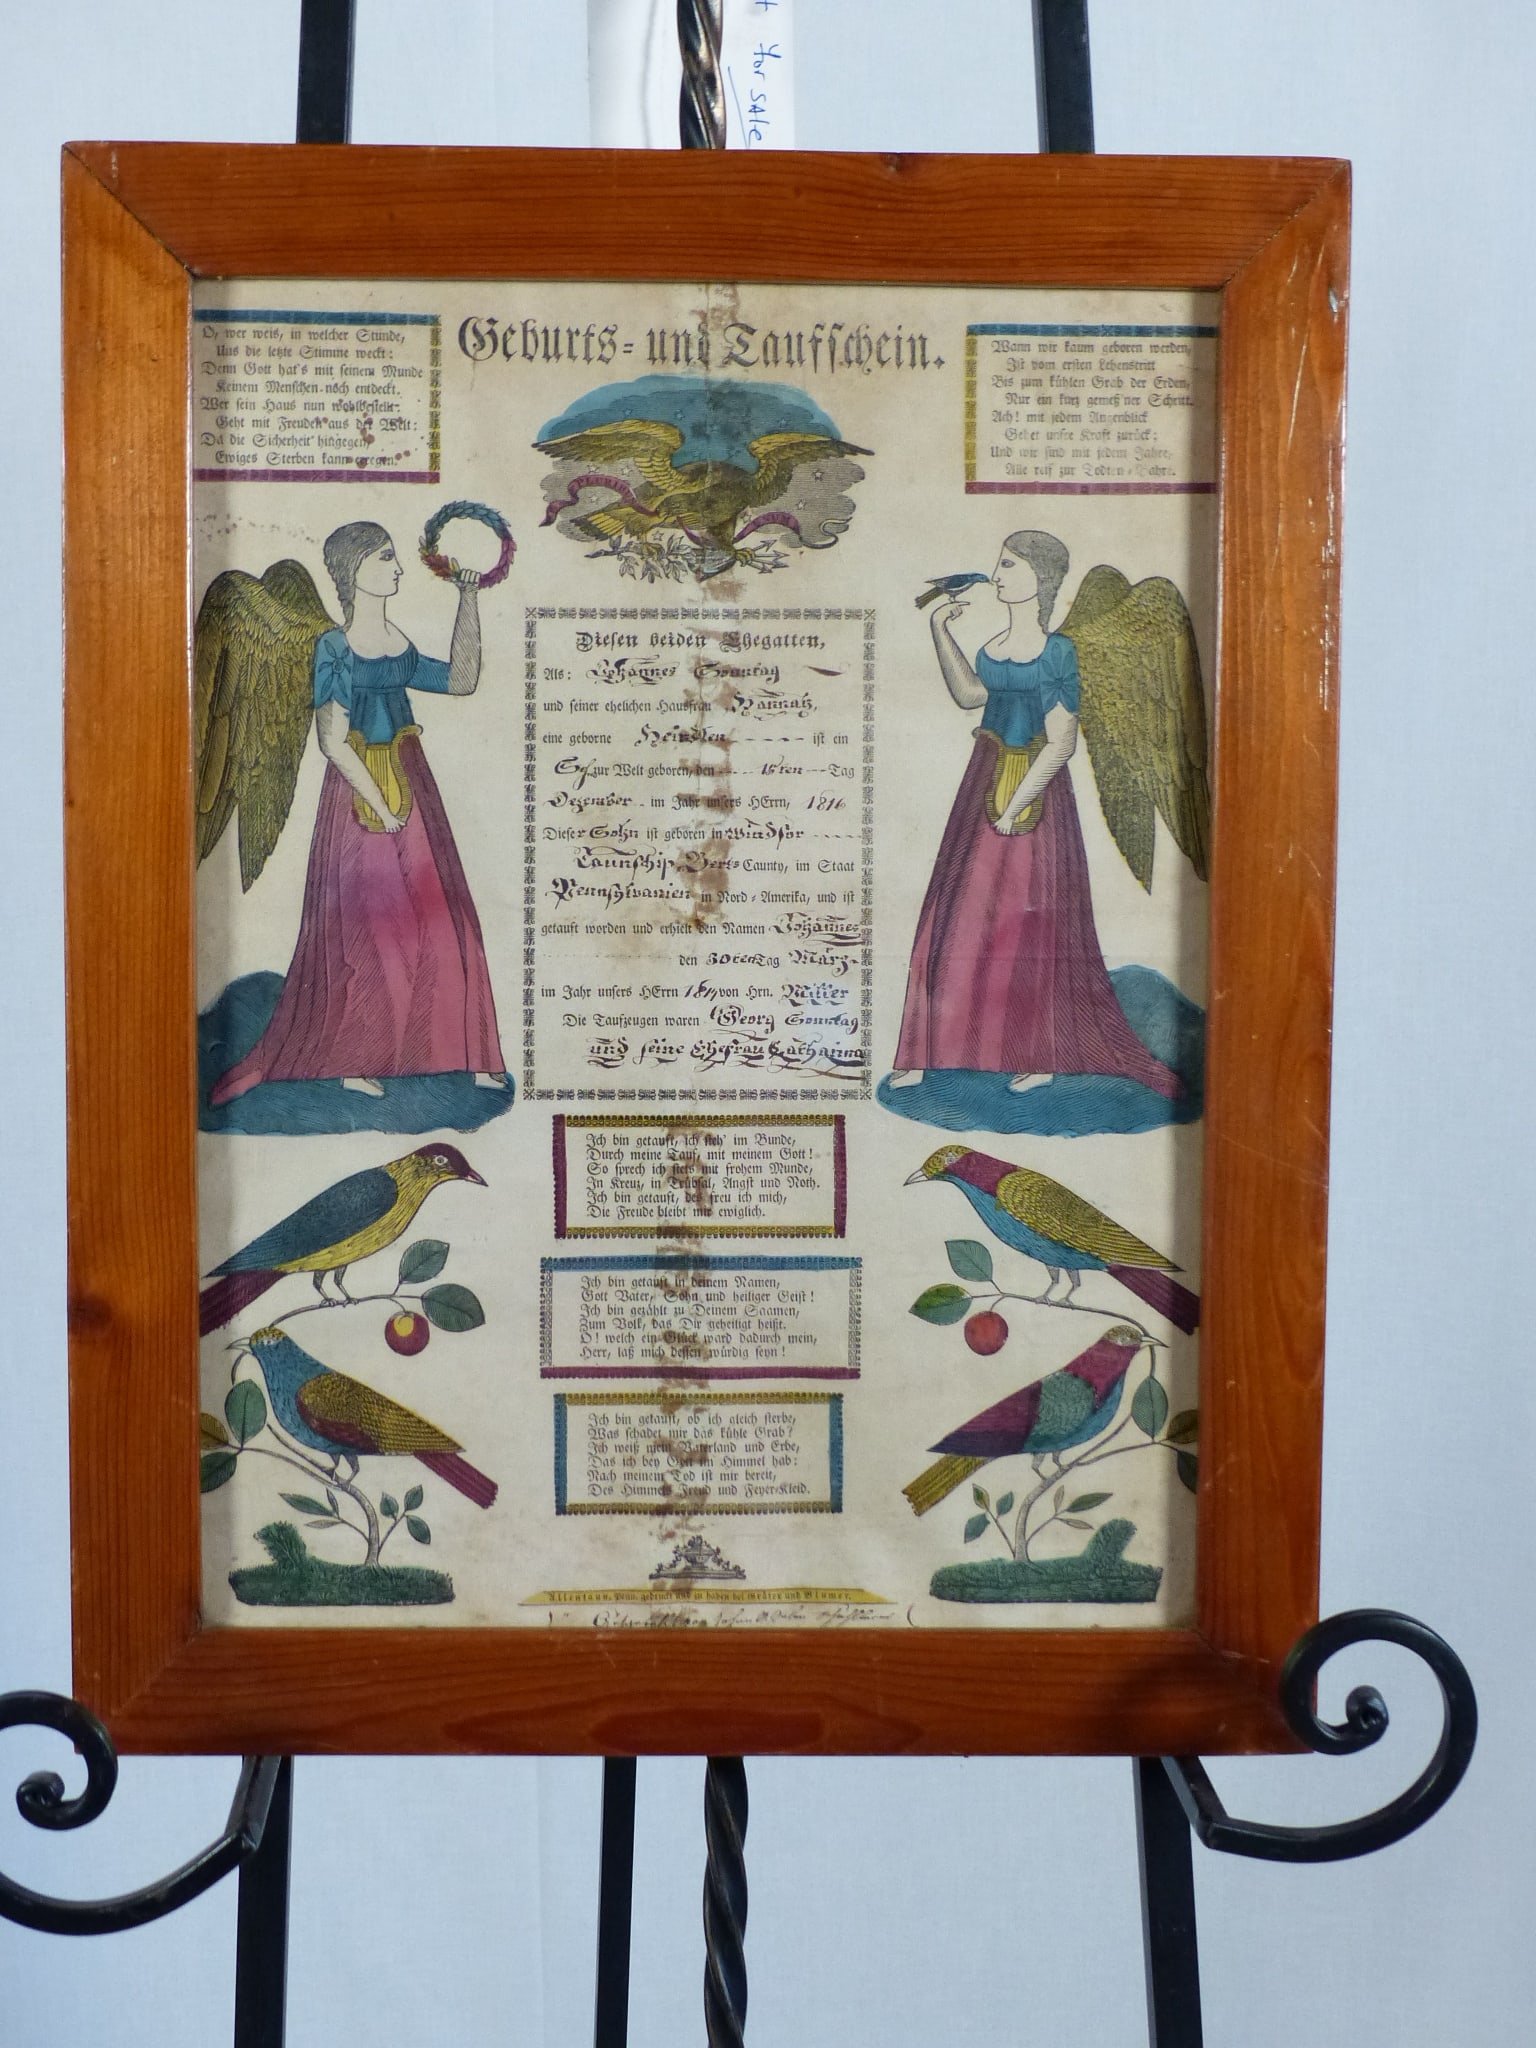 for SAle
Geburts- und Taufschein.
O, wer weis, in welcher Stunde,
Uns die letzte Stimme weckt:
Denn Gott hat's mit seinem Munde
Keinem Menschen noch entdeckt.
Wer sein Haus nun wohlbestellt,
Geht mit Freuden aus der Welt:
Da die Sicherheit hingegen,
Ewiges Sterben kann erregen.
Wann wir kaum geboren werden,
Ist vom ersten Lebenstritt
Bis zum kühlen Grab der Erden,
Nur ein kurz gemeß'ner Schritt.
Ach! mit jedem Augenblick
Gehet unsre Kraft zurück;
Und wir sind mit jedem Jahre,
Alle reif zur Todten-Bahre.
PLURIBUS
UNUM
Diesen beiden Ehegatten,
Als: Johannes Sonntag
und seiner ehelichen Hausfrau Hannah,
eine geborne ist ein
zur Welt geboren, den 15ten Tag
Dezember im Jahr unsers HErrn, 1816
Dieser Sohn ist geboren in Windsor
Taunschip Berks Caunty, im Staat
Pennsylvanien in Nord-Amerika, und ist
getauft worden und erhielt den Namen Johannes
den 30ten Tag März
im Jahr unsers HErrn 1817 von Hrn. Miller
Die Taufzeugen waren Georg Sonntag
und seine Ehefrau Catharina
Ich bin getauft, ich steh' im Bunde,
Durch meine Tauf, mit meinem Gott!
So sprech ich stets mit frohem Munde,
In Kreuz, in Trübsal, Angst und Noth.
Ich bin getauft, des freu ich mich,
Die Freude bleibt mir ewiglich.
Ich bin getauft in deinem Namen,
Gott Vater, Sohn und heiliger Geist!
Ich bin gezählt zu Deinem Saamen,
Zum Volk, das Dir geheiligt heißt.
O! welch ein Glück ward dadurch mein,
Herr, laß mich dessen würdig seyn!
Ich bin getauft, ob ich gleich sterbe,
Was schadet mir das kühle Grab?
Ich weiß mein Vaterland und Erbe,
Das ich bey Gott im Himmel hab:
Nach meinem Tod ist mir bereit,
Des Himmels Freud und Feyer-Kleid.
Allentaun, Penn. gedruckt und zu haben bei Gräter und Blumer.